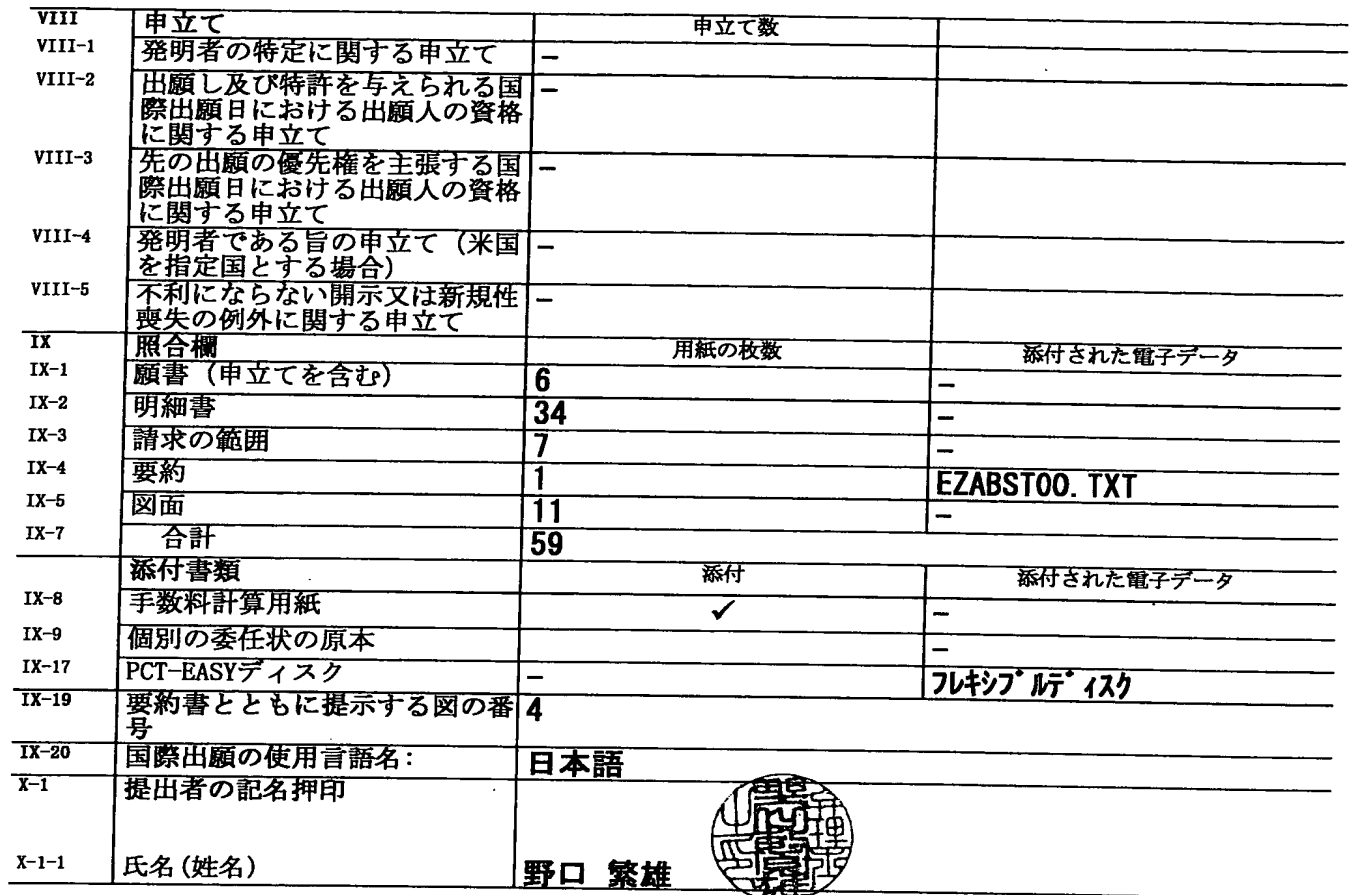 VIII 申立て 申立て数
VIII-1 発明者の特定に関する申立て –
VIII-2 出願し及び特許を与えられる国 –
際出願日における出願人の資格
に関する申立て
VIII-3 先の出願の優先権を主張する国 –
際出願日における出願人の資格
に関する申立て
VIII-4 発明者である旨の申立て（米国 –
を指定国とする場合）
VIII-5 不利にならない開示又は新規性 –
喪失の例外に関する申立て
IX 照合欄 用紙の枚数 添付された電子データ
IX-1 願書（申立てを含む） 6 –
IX-2 明細書 34 –
IX-3 請求の範囲 7 –
IX-4 要約 1 EZABST00.TXT
IX-5 図面 11 –
IX-7 合計 59
添付書類 添付 添付された電子データ
IX-8 手数料計算用紙 ✓ –
IX-9 個別の委任状の原本 –
IX-17 PCT-EASYディスク – フレキシブルディスク
IX-19 要約書とともに提示する図の番 4
号
IX-20 国際出願の使用言語名: 日本語
X-1 提出者の記名押印
X-1-1 氏名(姓名) 野口 繁雄